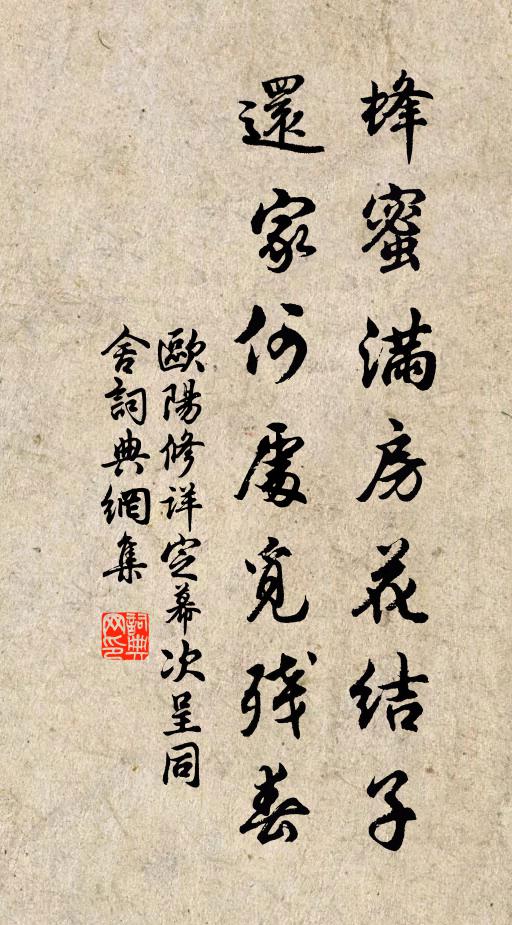 蜂蜜滿房花結子
還家何處覓殘春
歐陽修详定幕次呈同
舍詞典網集
詞典网印